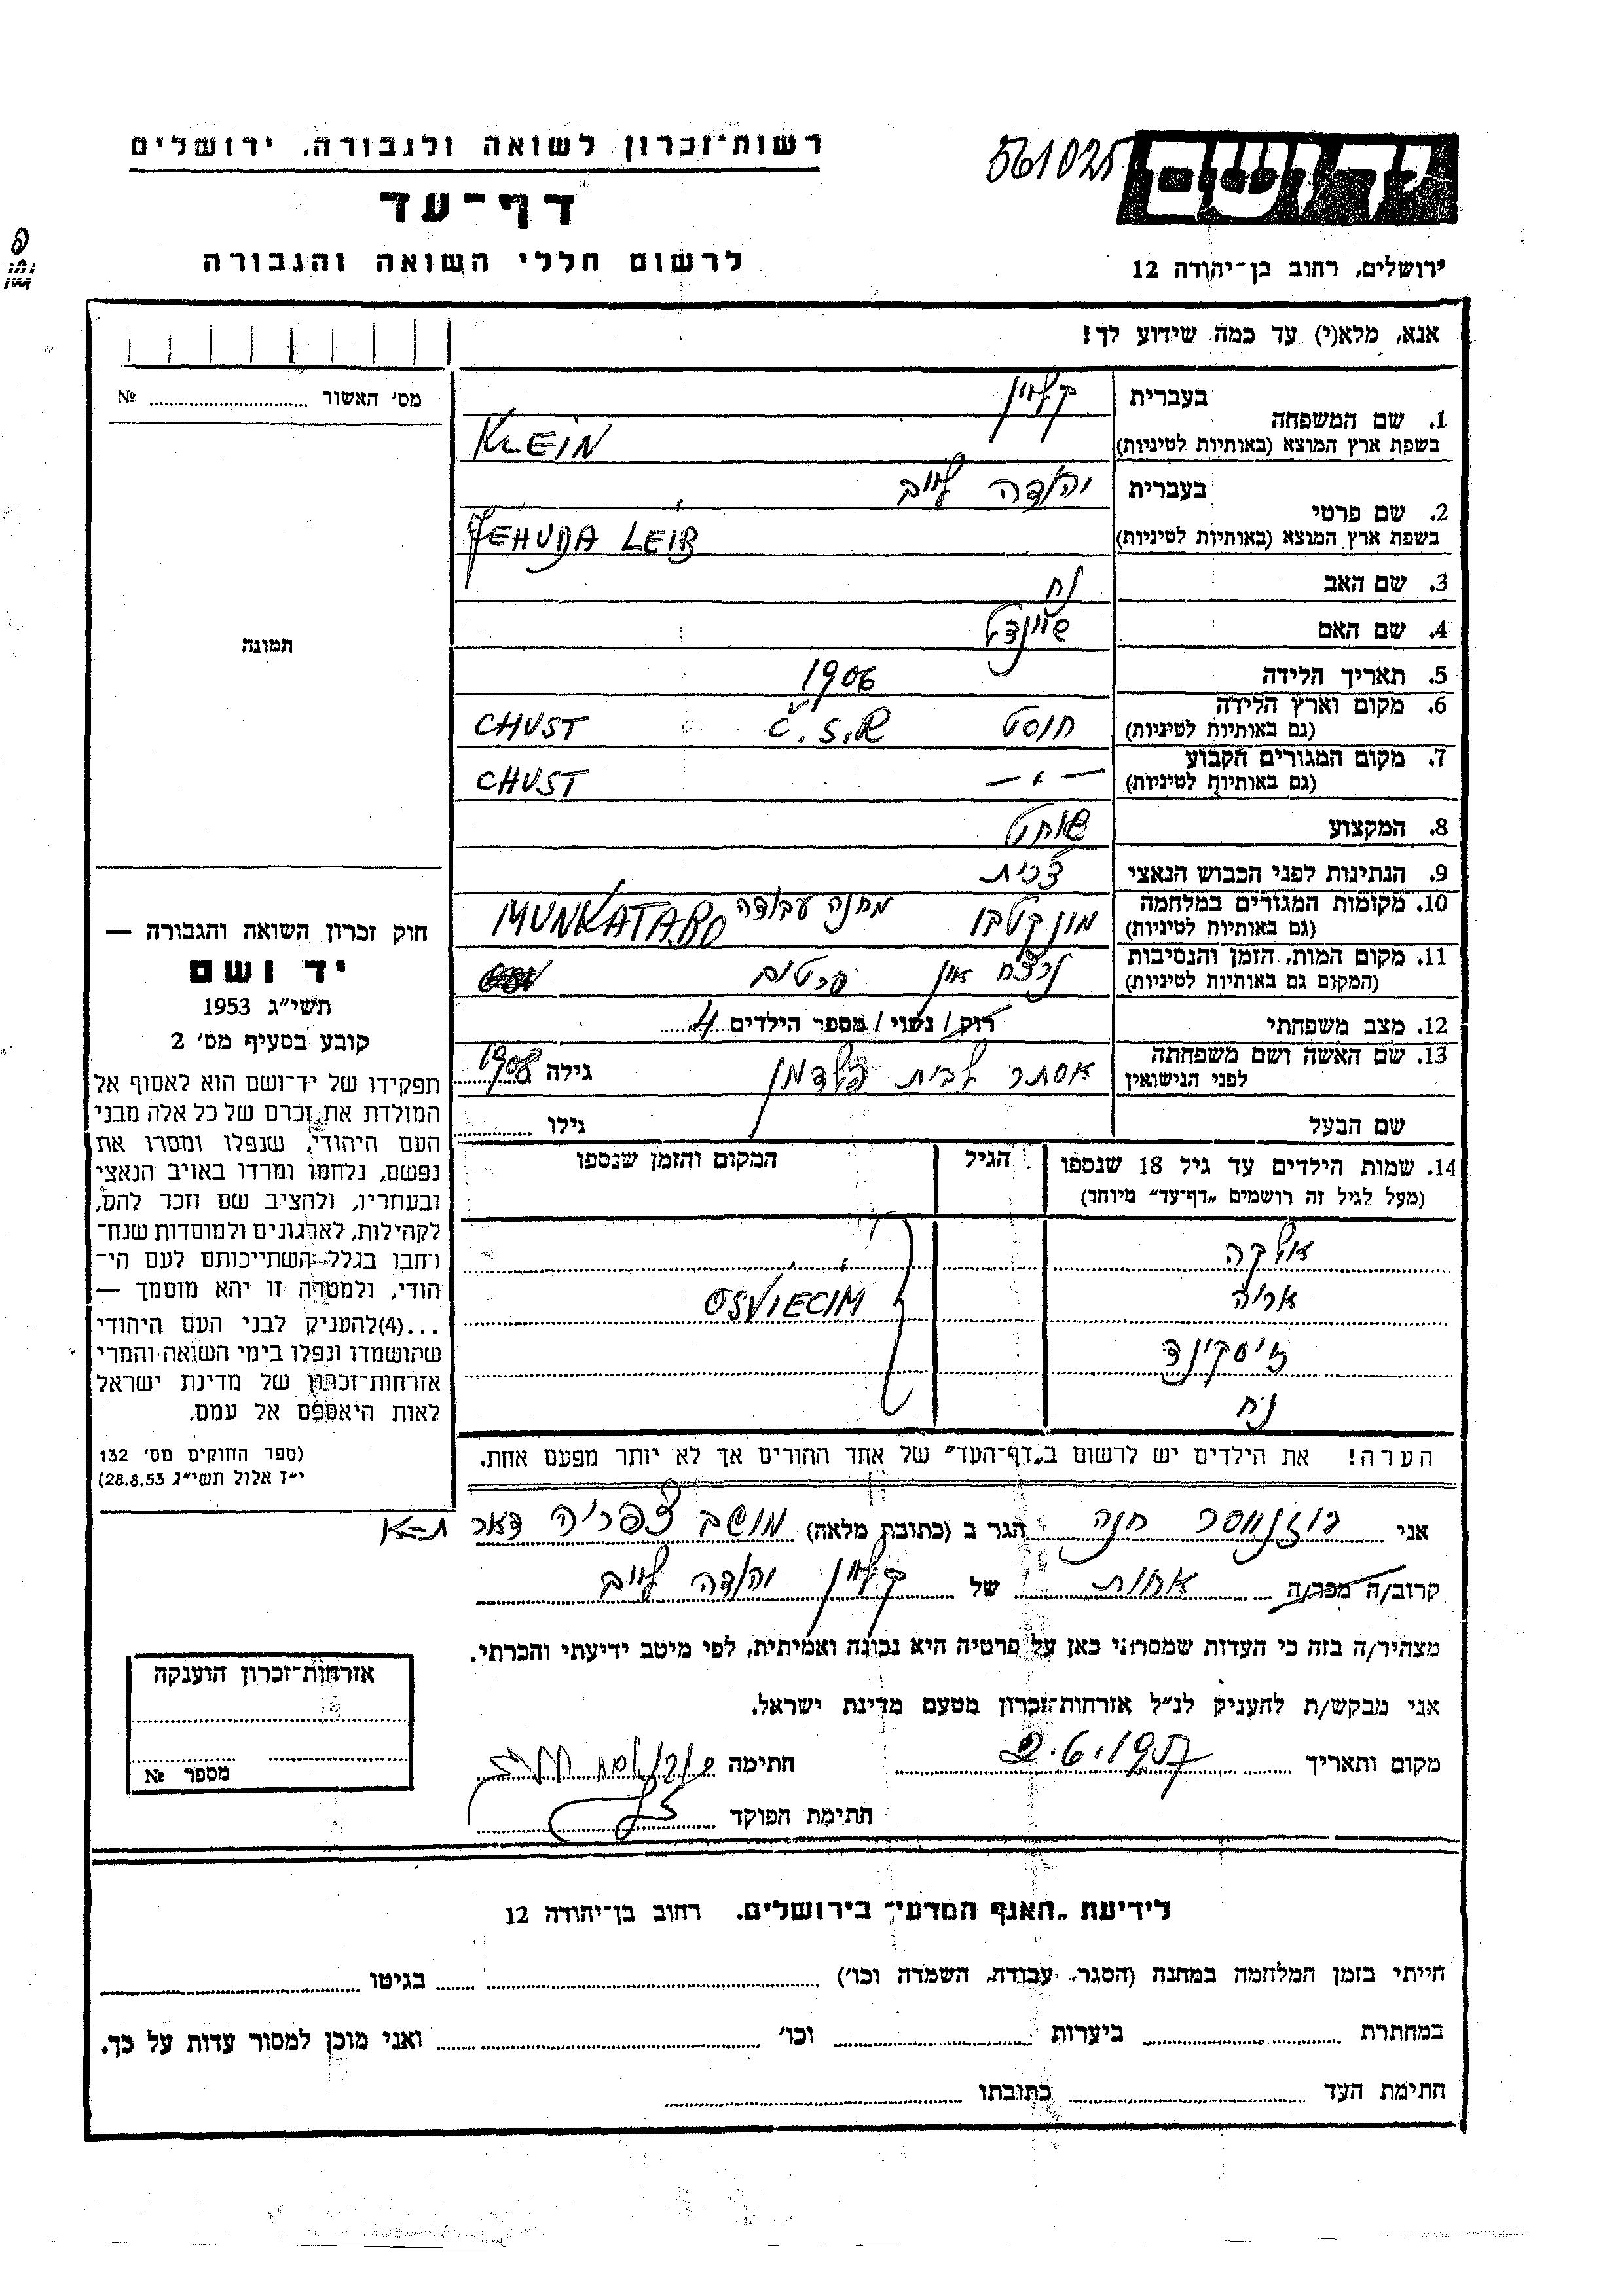 רשות־זכרון לשואה ולגבורה. ירושלים
561025
דף־עד
לרשום חללי השואה והגבורה
ירושלים, רחוב בן־יהודה 12
אנא, מלא(י) עד כמה שידוע לך!
מס׳ האשור № 
1. שם המשפחה
בעברית קליין
בשפת ארץ המוצא (באותיות לטיניות) KLEIN
2. שם פרטי
בעברית יהודה לייב
בשפת ארץ המוצא (באותיות לטיניות) JEHUDA LEIB
3. שם האב נח
4. שם האם שיינדל
5. תאריך הלידה 1906
6. מקום וארץ הלידה חוסט Č.S.R CHUST
(גם באותיות לטיניות)
7. מקום המגורים הקבוע — " — CHUST
(גם באותיות לטיניות)
8. המקצוע שוחט
9. הנתינות לפני הכבוש הנאצי צ'כית
10. מקומות המגורים במלחמה מונקטבו מחנה עבודה MUNKATABO
(גם באותיות לטיניות)
11. מקום המות, הזמן והנסיבות נרצח אין פרטים
(המקום גם באותיות לטיניות)
12. מצב משפחתי רוק / נשוי / מספר הילדים 4
13. שם האשה ושם משפחתה לפני הנישואין אסתר לבית פלדמן גילה 1908
שם הבעל גילו
14. שמות הילדים עד גיל 18 שנספו הגיל המקום והזמן שנספו
(מעל לגיל זה רושמים „דף־עד” מיוחד)
אלקה
אריה OSVIECIM
זיסקינד
נח
הערה! את הילדים יש לרשום ב„דף־העד” של אחד ההורים אך לא יותר מפעם אחת.
תמונה
חוק זכרון השואה והגבורה —
יד ושם
תשי״ג 1953
קובע בסעיף מס׳ 2
תפקידו של יד־ושם הוא לאסוף אל
המולדת את זכרם של כל אלה מבני
העם היהודי, שנפלו ומסרו את
נפשם, נלחמו ומרדו באויב הנאצי
ובעוזריו, ולהציב שם וזכר להם,
לקהילות, לארגונים ולמוסדות שנח־
רבו בגלל השתייכותם לעם הי־
הודי, ולמטרה זו יהא מוסמך —
...(4)להעניק לבני העם היהודי
שהושמדו ונפלו בימי השואה והמרי
אזרחות־זכרון של מדינת ישראל
לאות היאספם אל עמם.
(ספר החוקים מס׳ 132
י״ז אלול תשי״ג 28.8.53)
אני חנה הגר ב (כתובת מלאה) מושב צפריה דאר ת־א
קרוב/ה מכר/ה אחות של קליין יהודה לייב
מצהיר/ה בזה כי העדות שמסרתי כאן על פרטיה היא נכונה ואמיתית, לפי מיטב ידיעתי והכרתי.
אני מבקש/ת להעניק לנ״ל אזרחות־זכרון מטעם מדינת ישראל.
מקום ותאריך 2.6.1957 חתימה
חתימת הפוקד
אזרחות־זכרון הוענקה
מספר №
לידיעת „האגף המדעי” בירושלים. רחוב בן־יהודה 12
הייתי בזמן המלחמה במחנה (הסגר, עבודה, השמדה וכו׳) בגיטו
במחתרת ביערות וכו׳ ואני מוכן למסור עדות על כך.
חתימת העד כתובתו